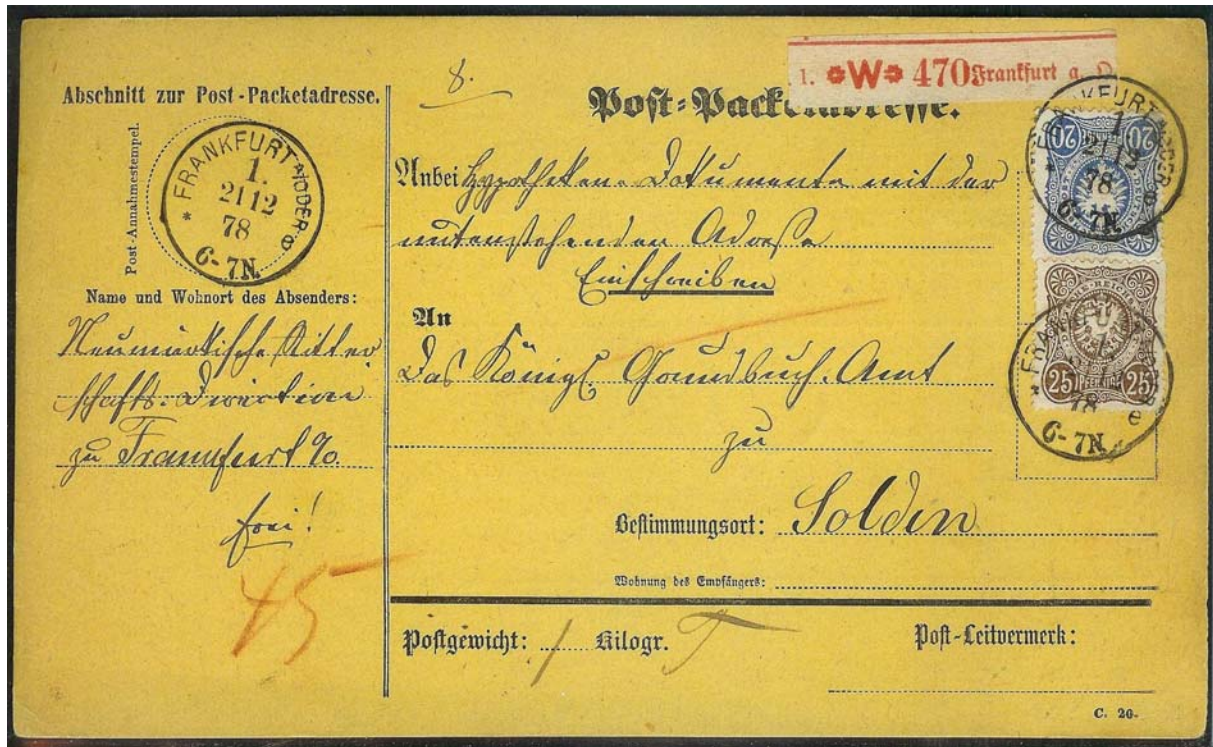 Abschnitt zur Post-Packetadresse.
Post-Annahmestempel.
* FRANKFURT A/ODER *
1.
21 12
78
6-7N.
Name und Wohnort des Absenders:
Neumärkische Ritter
schafts-Direction
zu Frankfurt a/O.
frei!
45
8.
Post-Packetadresse.
1. W 470 Frankfurt a. O
Anbei Hypotheken-Dokumente mit der
untenstehenden Adresse
Einschreiben
An
Das Königl. Grundbuch-Amt
zu
Bestimmungsort: Soldin
Wohnung des Empfängers:
Postgewicht: 1 Kilogr.
Post-Leitvermerk:
C. 20.
20 20
FRANKFURT A/ODER
1
21 12
78
6-7N.
25 PFENNIG 25
78
6-7N.